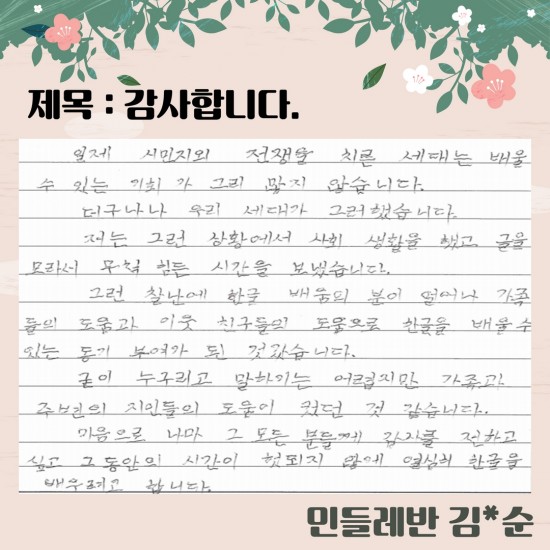 제목 : 감사합니다.
일제 시민지와 전쟁을 치른 세대는 배울
수 있는 기회가 그리 많지 않습니다.
더구나나 우리 세대가 그러했습니다.
저는 그런 상황에서 사회 생활을 했고 글을
모라서 무척 힘든 시간을 보냈습니다.
그런 찰난에 한글 배움의 분이 열어나 가족
들의 도움과 이웃 친구들의 도움으로 한글을 배울수
있는 동기 부여가 된 것갔습니다.
굳이 누구라고 말하기는 어렵지만 가족과
주변의 지인들의 도움이 컸던 것 같습니다.
마음으로 나마 그 모든 분들께 감사를 전하고
싶고 그동안의 시간이 헛되지 않에 열심히 한글을
배우려고 합니다.
민들레반 김*순